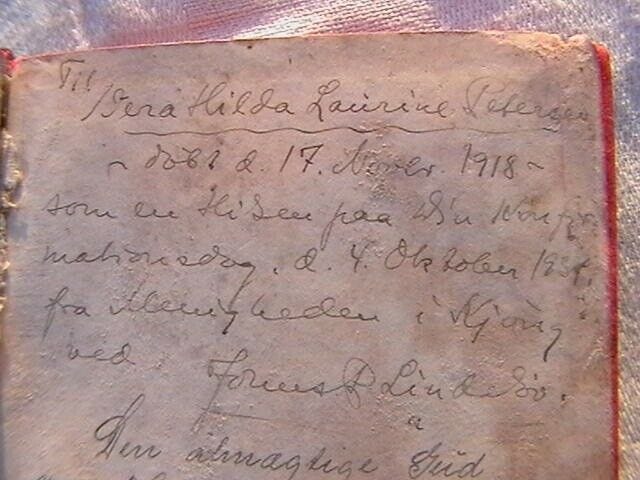 Til
Vera Hilda Laurine Petersen
~ døbt d. 17. Novbr. 1918 ~
som en Hilsen paa Din Konfir-
mationsdag, d. 4. Oktober
fra Menigheden i
ved
Den almægtige Gud